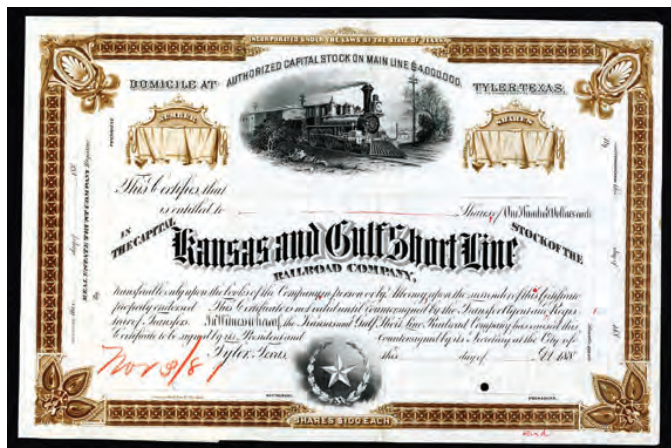 INCORPORATED UNDER THE LAWS OF THE STATE OF TEXAS
AUTHORIZED CAPITAL STOCK ON MAIN LINE $4,000,000.
DOMICILE AT
TYLER, TEXAS.
NUMBER
SHARES
This Certifies that
is entitled to
Shares of One Hundred Dollars each
IN THE CAPITAL
STOCK OF THE
Kansas and Gulf Short Line
RAILROAD COMPANY,
transferable only upon the books of the Company in person or by Attorney upon the surrender of this Certificate
properly endorsed. This Certificate is not valid until countersigned by the Transfer Agent and Regis-
trar of Transfers. In Witness whereof, the Kansas and Gulf Short Line Railroad Company has caused this
Certificate to be signed by its President and countersigned by its Secretary at the City of
Tyler, Texas, this day of A.D. 188
Nov 9/81
SECRETARY.
PRESIDENT.
SHARES $100 EACH
REAL ESTATE TRUST COMPANY
day of
188
By